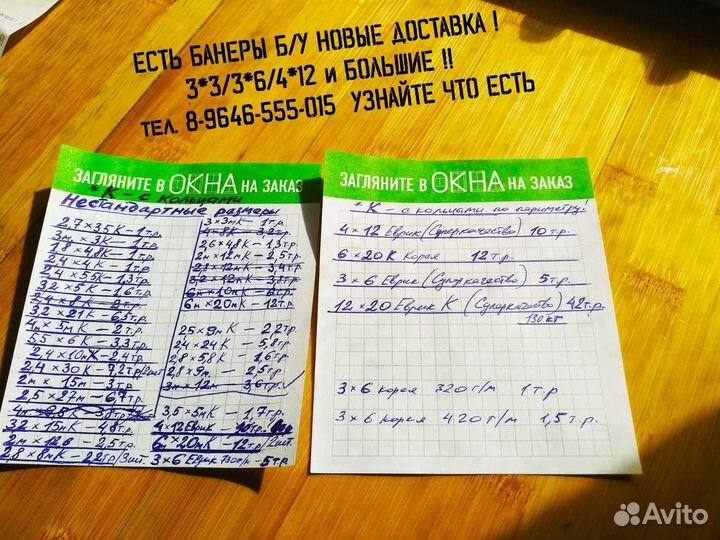 ЕСТЬ БАНЕРЫ Б/У НОВЫЕ ДОСТАВКА !
3*3/3*6/4*12 и БОЛЬШИЕ !!
тел. 8-9646-555-015 УЗНАЙТЕ ЧТО ЕСТЬ
ЗАГЛЯНИТЕ В ОКНА НА ЗАКАЗ
*К - с кольцами
Нестандартные размеры
2,7 x 3.5К - 1т.р.
3м x 3К - 1т.р.
1,8 x 4,8К - 1т.р.
2,4 x 4К - 1т.р.
2,4 x 5.5К - 1,3т.р.
3.2 x 5К - 1.6т.р.
2,4 x 8К - 2т.р.
3.2 x 21К - 6.5т.р.
4м x 5мК - 2т.р.
5.5 x 6К - 3.3т.р.
2,4 x 10мК - 2.4т.р.
2,4 x 30К - 7,2т.р/2шт.
2м x 15м - 3т.р.
2,5 x 27м - 6.7т.р.
3.2 x 15мК - 4.8т.р.
2м x 12 - 2.5т.р.
2,8 x 8мК - 2.2т.р/3шт.
3 x 3мК - 1т.р.
4 x 8К - 3,2т.р.
2,6 x 4,8К - 1,3т.р.
2м x 12мК - 2,5т.р.
2,8 x 12мК - 3,4т.р.
3,2 x 12мК - 3.8т.р.
6м x 10мК - 6т.р.
6м x 20мК - 12т.р.
2.5 x 9мК - 2,2т.р.
2.4 x 24К - 5,8т.р.
2,8 x 5,8К - 1,6т.р.
2,8 x 9м - 2.5т.р.
3м x 12м - 3.6т.р.
3,5 x 5мК - 1,7т.р.
4 x 12 Еврик - 10т.р.
6м x 20мК - 12т.р/2шт.
3 x 6 Еврик - 5т.р.
ЗАГЛЯНИТЕ В ОКНА НА ЗАКАЗ
*К - с кольцами по периметру!
4 x 12 Еврик (Суперкачество) 10т.р.
6 x 20К Корея 12т.р.
3 x 6 Еврик (Суперкачество) 5т.р.
12 x 20 Еврик К (Суперкачество) 42т.р.
130кг
3 x 6 корея 320г/м 1т.р
3 x 6 корея 420г/м 1,5т.р.
Avito